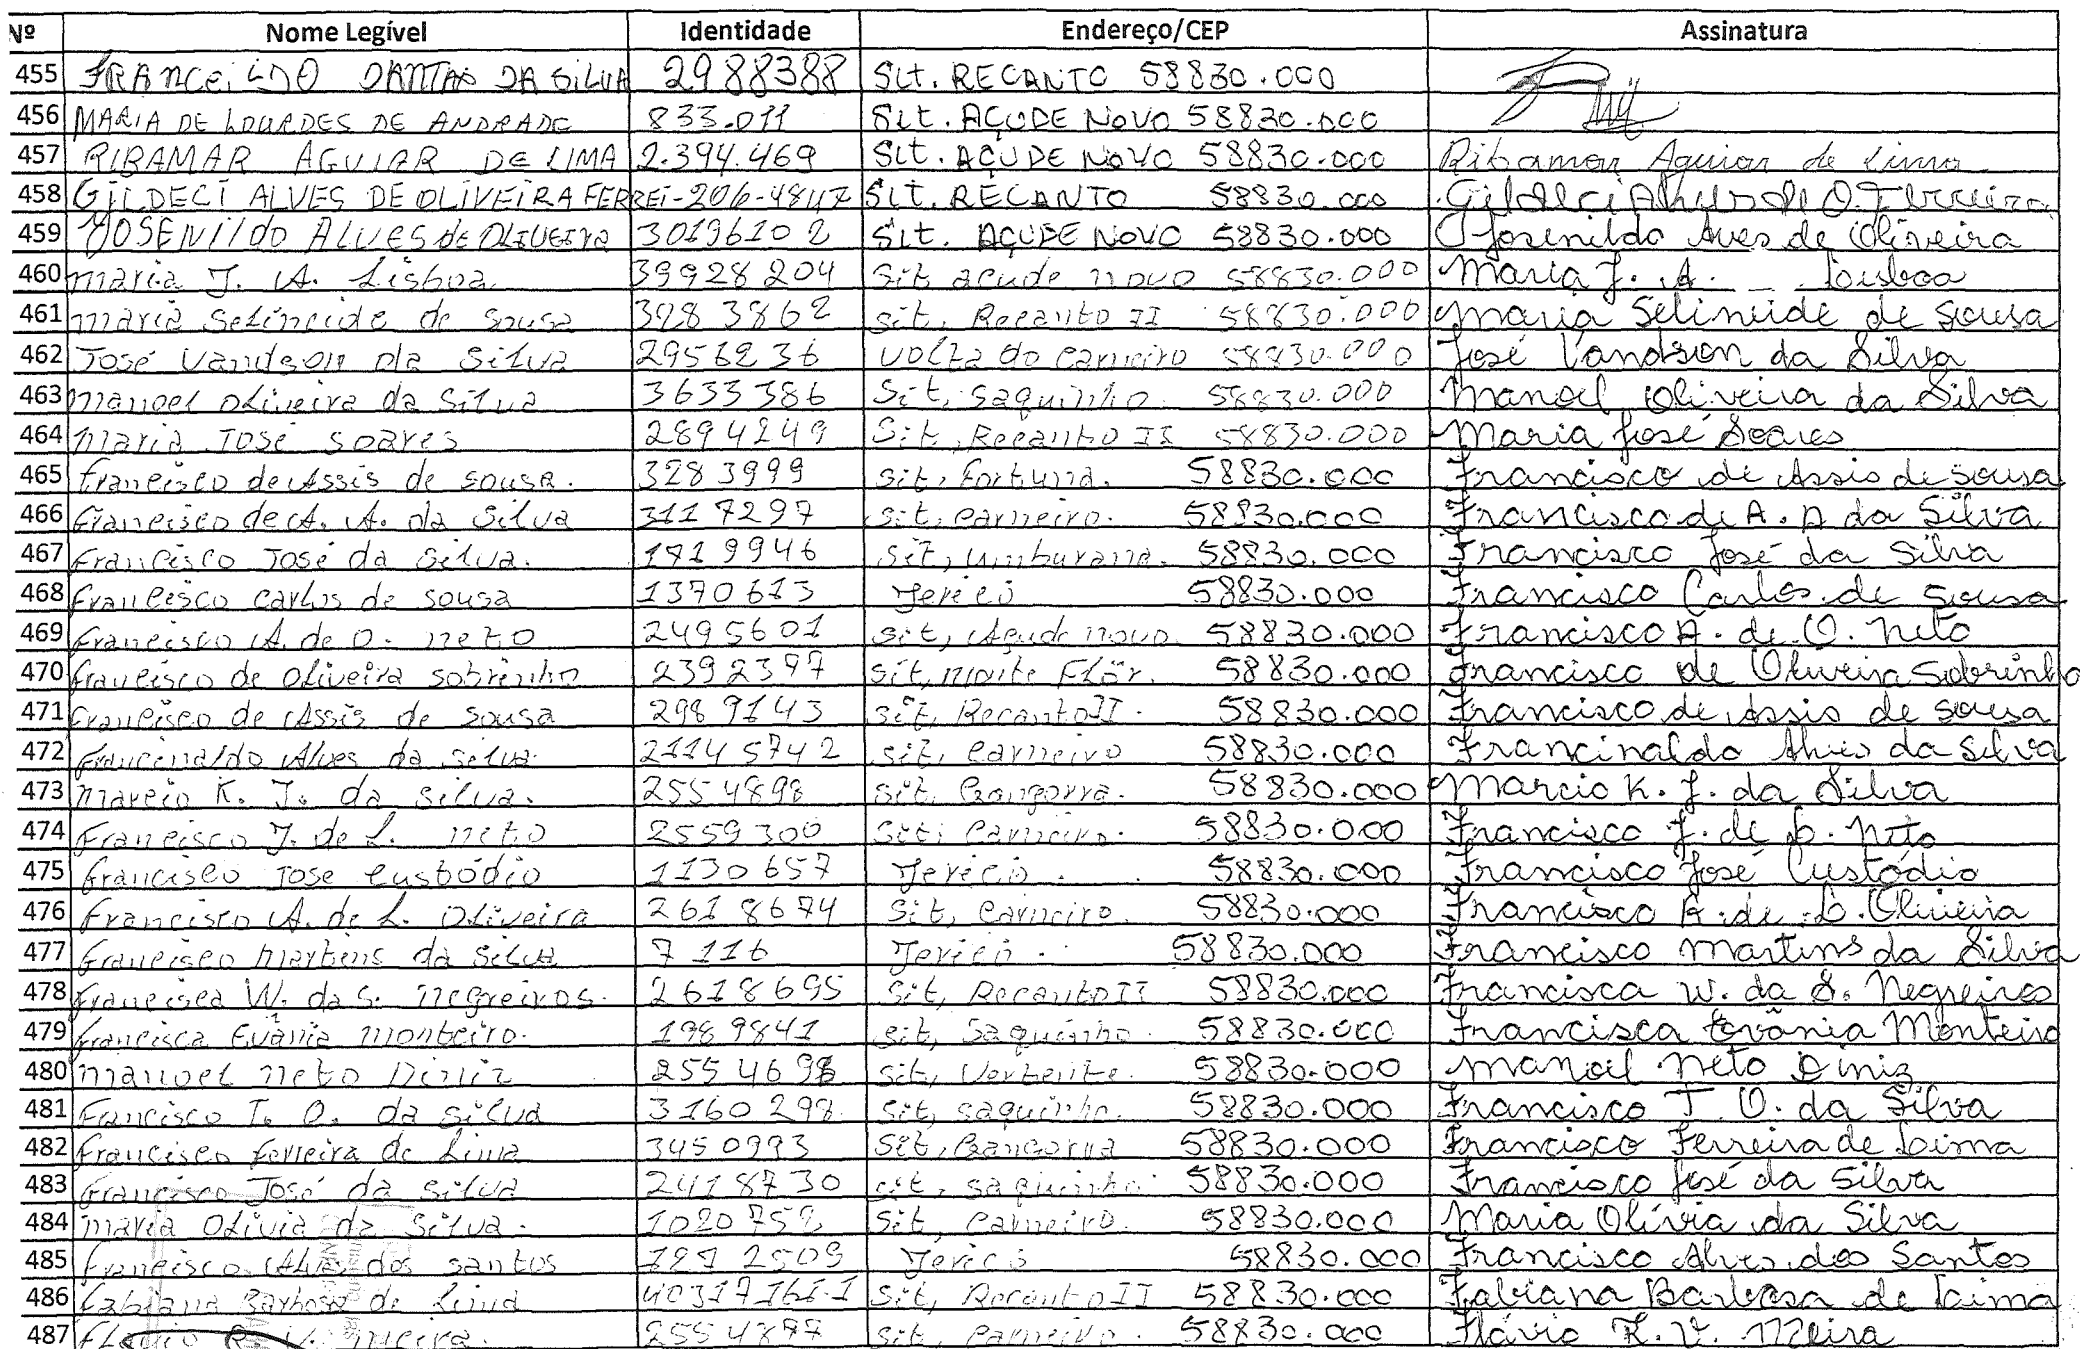 Nº Nome Legível Identidade Endereço/CEP Assinatura
455 FRANCEILDO DANTAS DA SILVA 2988388 SIT. RECANTO 58830.000
456 MARIA DE LOURDES DE ANDRADE 833.011 SIT. AÇUDE NOVO 58830.000
457 RIBAMAR AGUIAR DE LIMA 2.394.469 SIT. AÇUDE NOVO 58830.000 Ribamar Aguiar de Lima
458 GILDECI ALVES DE OLIVEIRA FERREI-206-4847 SIT. RECANTO 58830.000 Gildeci Alves de O. Ferreira
459 JOSENILDO ALVES DE OLIVEIRA 3019610 2 SIT. AÇUDE NOVO 58830.000 Josenildo Aves de Oliveira
460 Maria J. A. Lisboa 39928204 Sit açude novo 58830.000 Maria J. A. Lisboa
461 Maria Selineide de Sousa 328 3862 Sit, Recanto II 58830.000 Maria Selineide de Sousa
462 José Vandson da Silva 2956236 Volta do Carneiro 58830.000 José Vandson da Silva
463 Manoel Oliveira da Silva 3633386 Sit, Saquinho 58830.000 Manoel Oliveira da Silva
464 Maria José Soares 2894249 Sit, Recanto II 58830.000 Maria José Soares
465 Francisco de Assis de Sousa. 328 3999 Sit, Fortuna. 58830.000 Francisco de Assis de Sousa
466 Francisco de A. A. da Silva 3117297 Sit, Carneiro. 58830.000 Francisco de A. A da Silva
467 Francisco José da Silva. 1719946 Sit, Umburana. 58830.000 Francisco José da Silva
468 Francisco Carlos de Sousa 1370613 Jericó 58830.000 Francisco Carlos de Sousa
469 Francisco A. de O. Neto 2495601 Sit, Açude novo 58830.000 Francisco A. de O. Neto
470 Francisco de Oliveira Sobrinho 2392397 Sit, Monte Flor. 58830.000 Francisco de Oliveira Sobrinho
471 Francisco de Assis de Sousa 2989143 Sit, Recanto II. 58830.000 Francisco de Assis de Sousa
472 Francinaldo Alves da Silva. 21145742 Sit, Carneiro 58830.000 Francinaldo Alves da Silva
473 Marcio K. J. da Silva. 2554898 Sit, Gangorra. 58830.000 Marcio K. J. da Silva
474 Francisco J. de L. Neto 2559300 Sit, Carneiro. 58830.000 Francisco J. de L. Neto
475 Francisco Jose Custódio 1130657 Jericó. 58830.000 Francisco José Custódio
476 Francisco A. de L. Oliveira 2618674 Sit, Carneiro. 58830.000 Francisco A. de L. Oliveira
477 Francisco Martins da Silva 7 116 Jericó. 58830.000 Francisco Martins da Silva
478 Francisca W. da S. Negreiros. 2618695 Sit, Recanto II 58830.000 Francisca W. da S. Negreiros
479 Francisca Evânia Monteiro. 1989841 Sit, Saquinho. 58830.000 Francisca Evânia Monteiro
480 Manoel Neto Diniz 2554698 Sit, Vertente. 58830.000 Manoel Neto Diniz
481 Francisco T. O. da Silva 3160298 Sit, Saquinho. 58830.000 Francisco T O. da Silva
482 Francisco Ferreira de Lima 3450993 Sit, Gangorra 58830.000 Francisco Ferreira de Lima
483 Francisco José da Silva 2418730 Sit, Saquinho 58830.000 Francisco José da Silva
484 Maria Olivia da Silva. 1020752 Sit, Carneiro. 58830.000 Maria Olívia da Silva
485 Francisco Alves dos Santos 1872509 Jericó 58830.000 Francisco Alves dos Santos
486 Fabiana Barbosa de Lima 40317161-1 Sit, Recanto II 58830.000 Fabiana Barbosa de Lima
487 Flavio R. V. Meira. 2554897 Sit, Carneiro. 58830.000 Flávio R. V. Meira